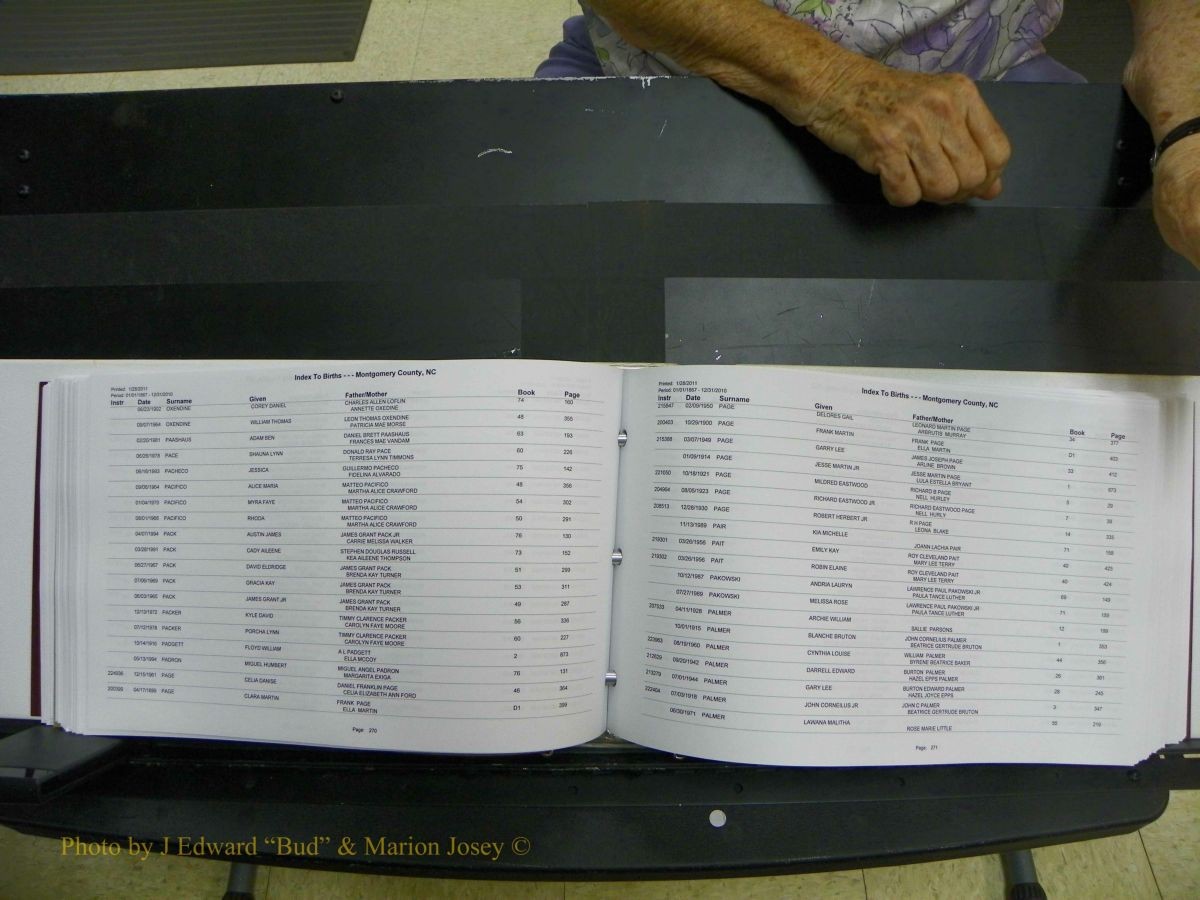 Index To Births - - - Montgomery County, NC
Printed: 1/28/2011
Period: 01/01/1867 - 12/31/2010
Instr Date Surname Given Father/Mother Book Page
OXENDINE COREY DANIEL CHARLES ALLEN LOFLIN 74 160
ANNETTE OXEDINE
OXENDINE WILLIAM THOMAS LEON THOMAS OXENDINE 48 355
PATRICIA MAE MORSE
02/20/1981 PAASHAUS ADAM BEN DANIEL BRETT PAASHAUS 63 193
FRANCES MAE VANDAM
PACE SHAUNA LYNN DONALD RAY PACE 60 226
TERRESA LYNN TIMMONS
PACHECO JESSICA GUILLERMO PACHECO 75 142
FIDELINA ALVARADO
PACIFICO ALICE MARIA MATTEO PACIFICO 48 356
MARTHA ALICE CRAWFORD
PACIFICO MYRA FAYE MATTEO PACIFICO 54 302
MARTHA ALICE CRAWFORD
PACIFICO RHODA MATTEO PACIFICO 50 291
MARTHA ALICE CRAWFORD
04/07/1994 PACK AUSTIN JAMES JAMES GRANT PACK JR 76 130
CARRIE MELISSA WALKER
03/28/1991 PACK CADY AILEENE STEPHEN DOUGLAS RUSSELL 73 152
KEA AILEENE THOMPSON
PACK DAVID ELDRIDGE JAMES GRANT PACK 51 299
BRENDA KAY TURNER
PACK GRACIA KAY JAMES GRANT PACK 53 311
BRENDA KAY TURNER
PACK JAMES GRANT JR JAMES GRANT PACK 49 287
BRENDA KAY TURNER
PACKER KYLE DAVID TIMMY CLARENCE PACKER 56 336
CAROLYN FAYE MOORE
PACKER PORCHA LYNN TIMMY CLARENCE PACKER 60 227
CAROLYN FAYE MOORE
PADGETT FLOYD WILLIAM A L PADGETT 2 673
ELLA MCCOY
05/13/1994 PADRON MIGUEL HUMBERT MIGUEL ANGEL PADRON 76 131
MARGARITA EXIGA
12/15/1961 PAGE CELIA DANISE DANIEL FRANKLIN PAGE 46 364
CELIA ELIZABETH ANN FORD
04/17/1899 PAGE CLARA MARTIN FRANK PAGE D1 399
ELLA MARTIN
Page: 270
Index To Births - - - Montgomery County, NC
Printed: 1/28/2011
Period: 01/01/1867 - 12/31/2010
Instr Date Surname Given Father/Mother Book Page
215847 02/09/1950 PAGE DELORES GAIL LEONARD MARTIN PAGE 34 377
ARBRUTIS MURRAY
200403 10/29/1900 PAGE FRANK MARTIN FRANK PAGE D1 403
ELLA MARTIN
215388 03/07/1949 PAGE GARRY LEE JAMES JOSEPH PAGE 33 412
ARLINE BROWN
01/09/1914 PAGE JESSE MARTIN JR JESSE MARTIN PAGE 1 673
LULA ESTELLA BRYANT
221050 10/18/1921 PAGE MILDRED EASTWOOD RICHARD B PAGE 29
NELL HURLEY
204964 08/05/1923 PAGE RICHARD EASTWOOD JR RICHARD EASTWOOD PAGE 7
NELL HURLY
208513 12/28/1930 PAGE ROBERT HERBERT JR R H PAGE 14 335
LEONA BLAKE
11/13/1989 PAIR KIA MICHELLE JOANN LACHIA PAIR 71
219301 03/26/1956 PAIT EMILY KAY ROY CLEVELAND PAIT 40 425
MARY LEE TERRY
219302 03/26/1956 PAIT ROBIN ELAINE ROY CLEVELAND PAIT 40 424
MARY LEE TERRY
10/12/1987 PAKOWSKI ANDRIA LAURYN LAWRENCE PAUL PAKOWSKI JR 69 149
PAULA TANCE LUTHER
07/27/1989 PAKOWSKI MELISSA ROSE LAWRENCE PAUL PAKOWSKI JR 71
PAULA TANCE LUTHER
04/11/1928 PALMER ARCHIE WILLIAM SALLIE PARSONS 12
10/01/1915 PALMER BLANCHE BRUTON JOHN CORNELIUS PALMER 1 353
BEATRICE GERTRUDE BRUTON
08/19/1960 PALMER CYNTHIA LOUISE WILLIAM PALMER 44 356
BYRENE BEATRICE BAKER
09/20/1942 PALMER DARRELL EDWARD BURTON PALMER 26 361
HAZEL EPPS PALMER
213279 07/01/1944 PALMER GARY LEE BURTON EDWARD PALMER 28 245
HAZEL JOYCE EPPS
222404 07/03/1918 PALMER JOHN CORNELIUS JR JOHN C PALMER 3 347
BEATRICE GERTRUDE BRUTON
06/30/1971 PALMER LAWANA MALITHA ROSE MARIE LITTLE 55 219
Page: 271
Photo by J Edward “Bud” & Marion Josey ©